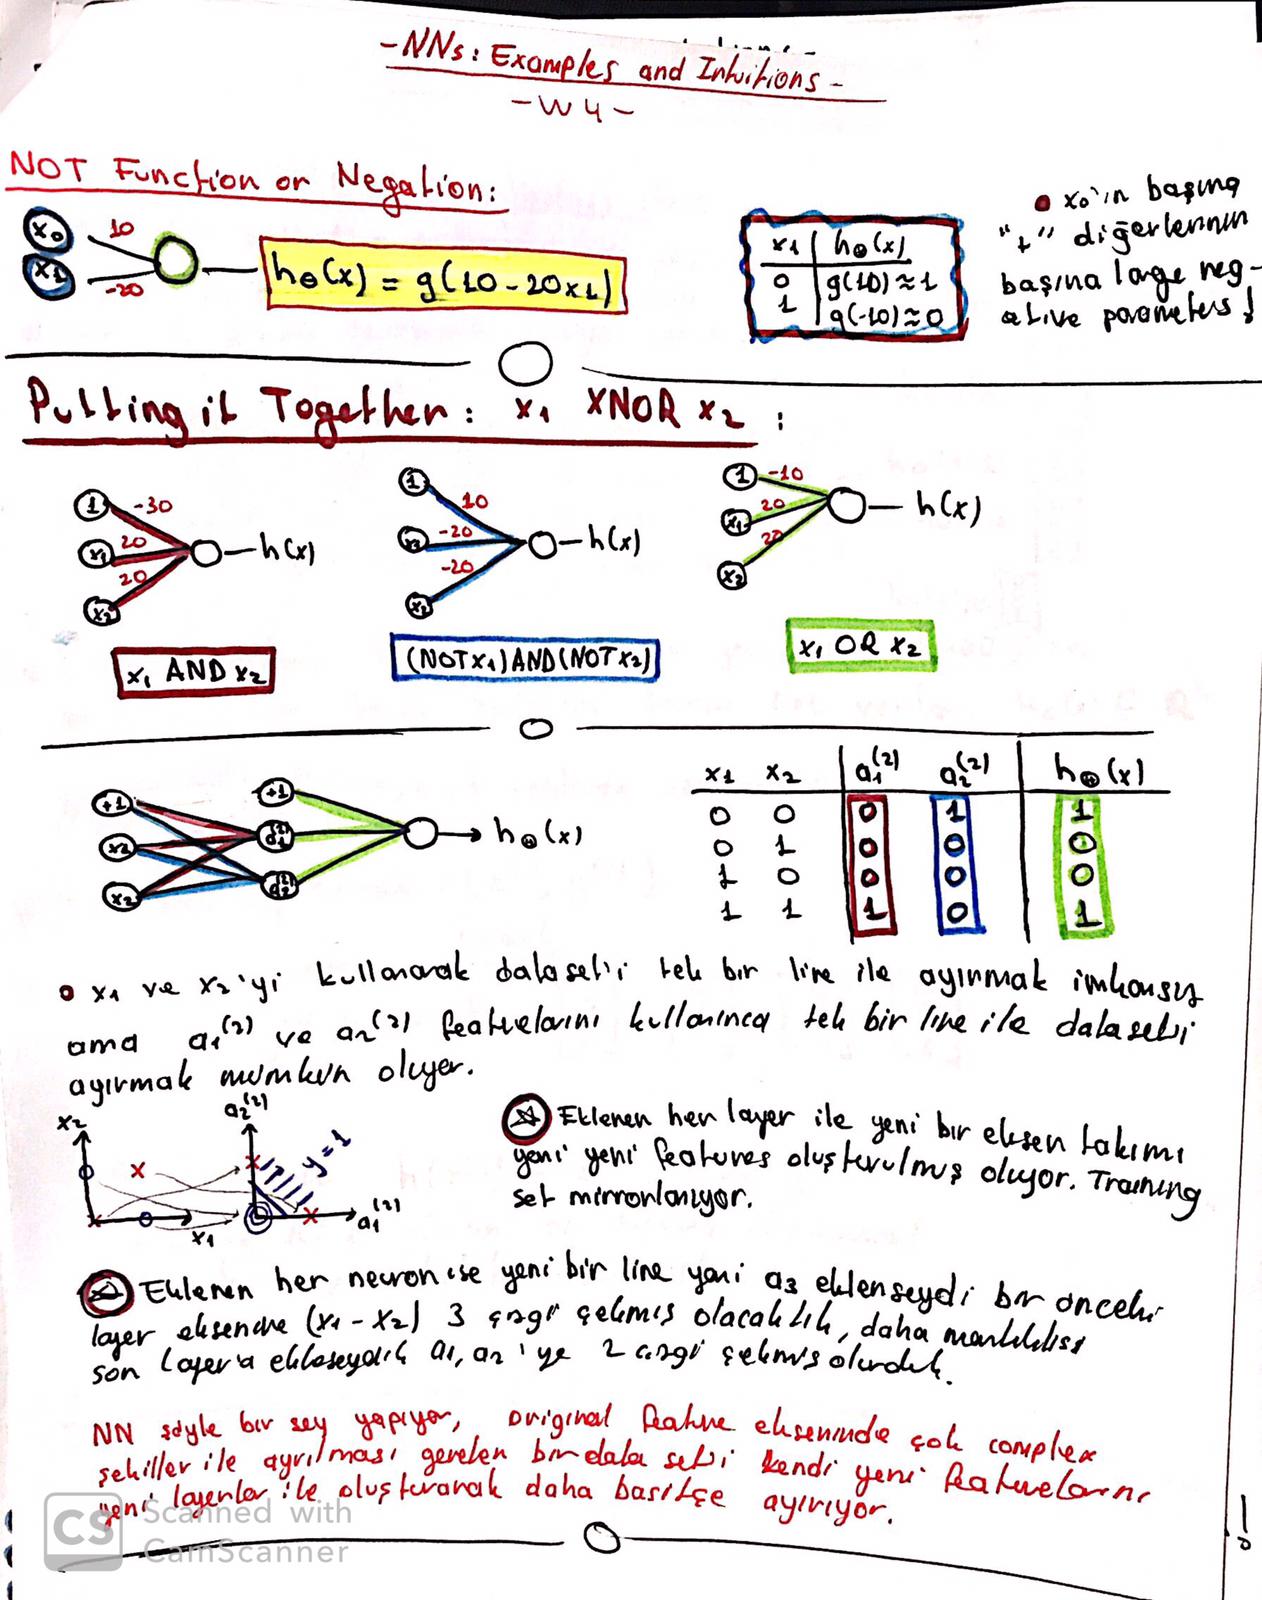 -NNs: Examples and Intuitions-
-W4-
NOT Function or Negation:
x0 10
x1 -20
hθ(x) = g(10-20x1)
x1 hθ(x)
0 g(10)≈1
1 g(-10)≈0
x0'ın başına
"+" diğerlerinin
başına large neg-
ative parameters!
Putting it Together: x1 XNOR x2:
1 -30
x1 20 h(x)
x2 20
x1 AND x2
1 10
-20 h(x)
x2 -20
(NOT x1) AND (NOT x2)
1 -10
x1 20 h(x)
x2 20
x1 OR x2
+1 +1
x2 a1(2) hΘ(x)
x2 a2(2)
x1 x2 a1(2) a2(2) hΘ(x)
0 0 0 1 1
0 1 0 0 0
1 0 0 0 0
1 1 1 0 1
• x1 ve x2'yi kullanarak dataseti tek bir line ile ayırmak imkansız
ama a1(2) ve a2(2) featurelarını kullanınca tek bir line ile dataseti
ayırmak mümkün oluyor.
x2
x1
a2(2)
y=1
a1(2)
Eklenen her layer ile yeni bir eksen takımı
yani yeni features oluşturulmuş oluyor. Training
set mirrorlanıyor.
Eklenen her neuron ise yeni bir line yani a3 eklenseydi bir önceki
layer eksenine (x1-x2) 3 çizgi çekmiş olacaktık, daha mantıklısı
son layer'a ekleseydik a1, a2'ye 2 çizgi çekmiş olurduk.
NN şöyle bir şey yapıyor, original feature ekseninde çok complex
şekiller ile ayrılması gereken bir data seti kendi yeni featurelarını
yeni layerlar ile oluşturarak daha basitçe ayırıyor.
CS Scanned with
CamScanner